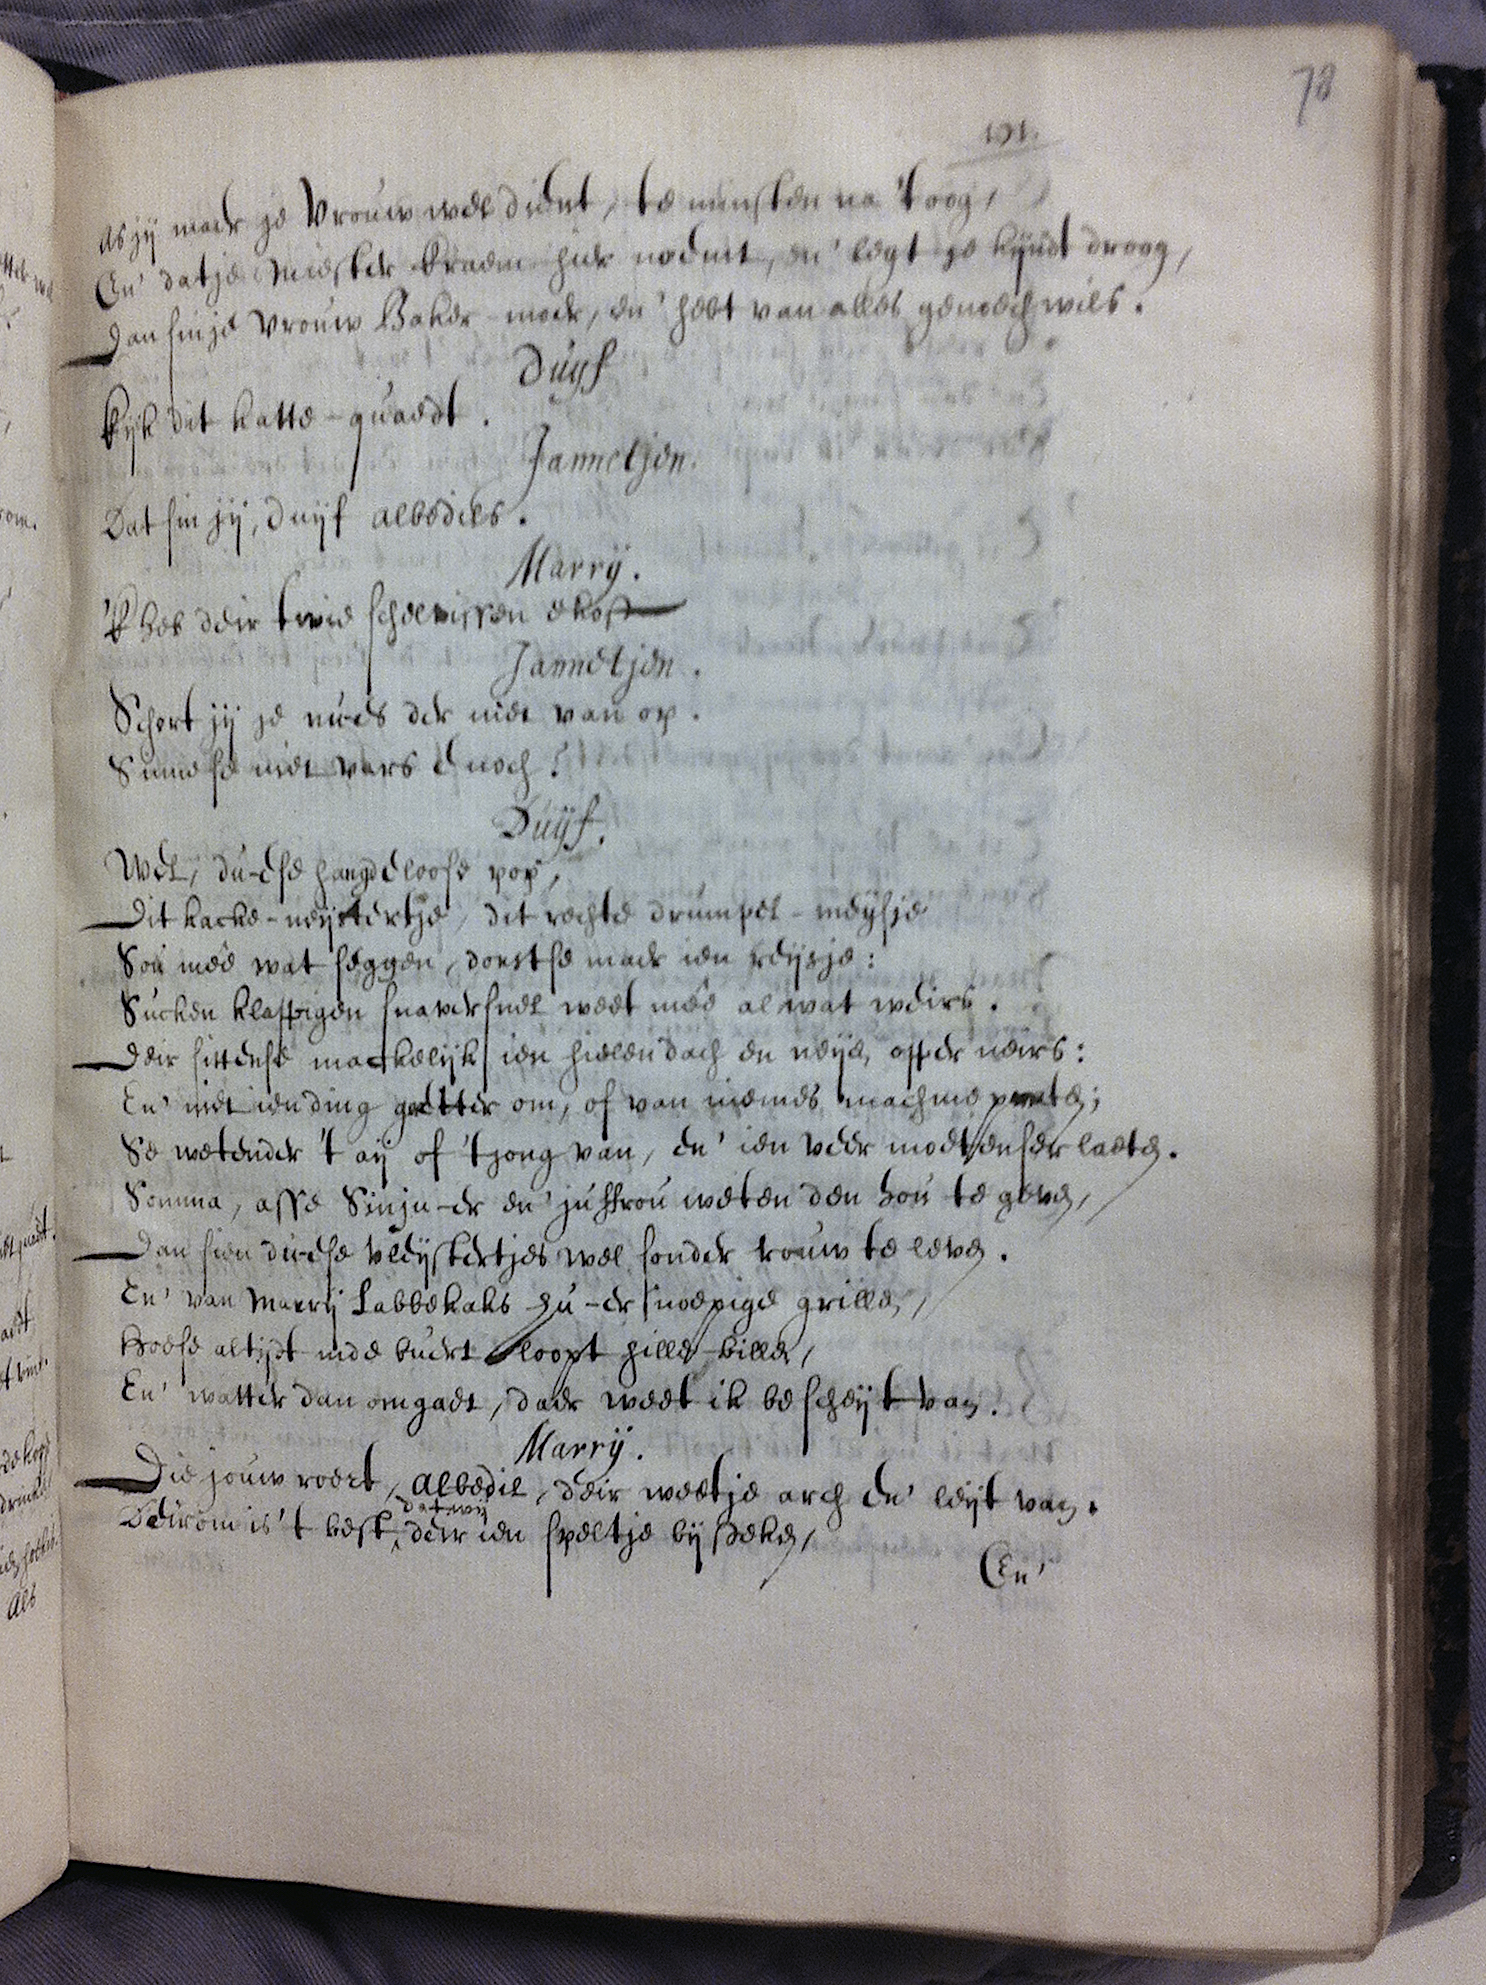 78
191.
As jÿ maer je Vrouw wel dient, te minsten na 't oog,
En' datje Miester kraem hier noemt, en' legt je kÿndt droog,
Dan sin je Vrouw Baker-moer, en' hebt van alles genoech wils.
Duÿf
Kÿk dit katte-quaedt.
Jannetjen.
Dat sin jÿ, duÿf albedils.
Marrÿ.
'k heb deir twie schelvissen ekost
Jannetjen.
Schort jÿ je nu-es der niet van op.
Sinnese niet vars enoch?
Duÿf.
Wel, du-ese hangdeloose pop,
Dit kacke-neÿstertje, dit rechte drumpel-meÿsje
Sou meê wat seggen, dorstse maer ien reÿsje:
Sucken klappigen snaversnel weet meê al wat weirs.
Deir sittense mackelÿk ien hielen dach en neÿe, opper neirs:
En' niet ien ding gaetter om, of van niemes machme praeten;
Se wetender 't aÿ of 't jong van, en' ien veer moetenser laeten.
Somma, asse Sinju-er en' juffrou weten den hou te geven,
Dan sien du-ese vleÿstertjes wel sonder rouw te leven.
En' van Marrÿ Labbekaks hu-er snoepige grillen,
Hoese altÿdt inde buert loopt hille-billen,
En' watter dan omgaet, daer weet ik bescheÿt van.
Marrÿ.
Die jouw roert, Albedil, deir weetje arch en' leÿt van.
dat wÿ
Deirom is't best, deir ien speltje bÿ steken,
En'